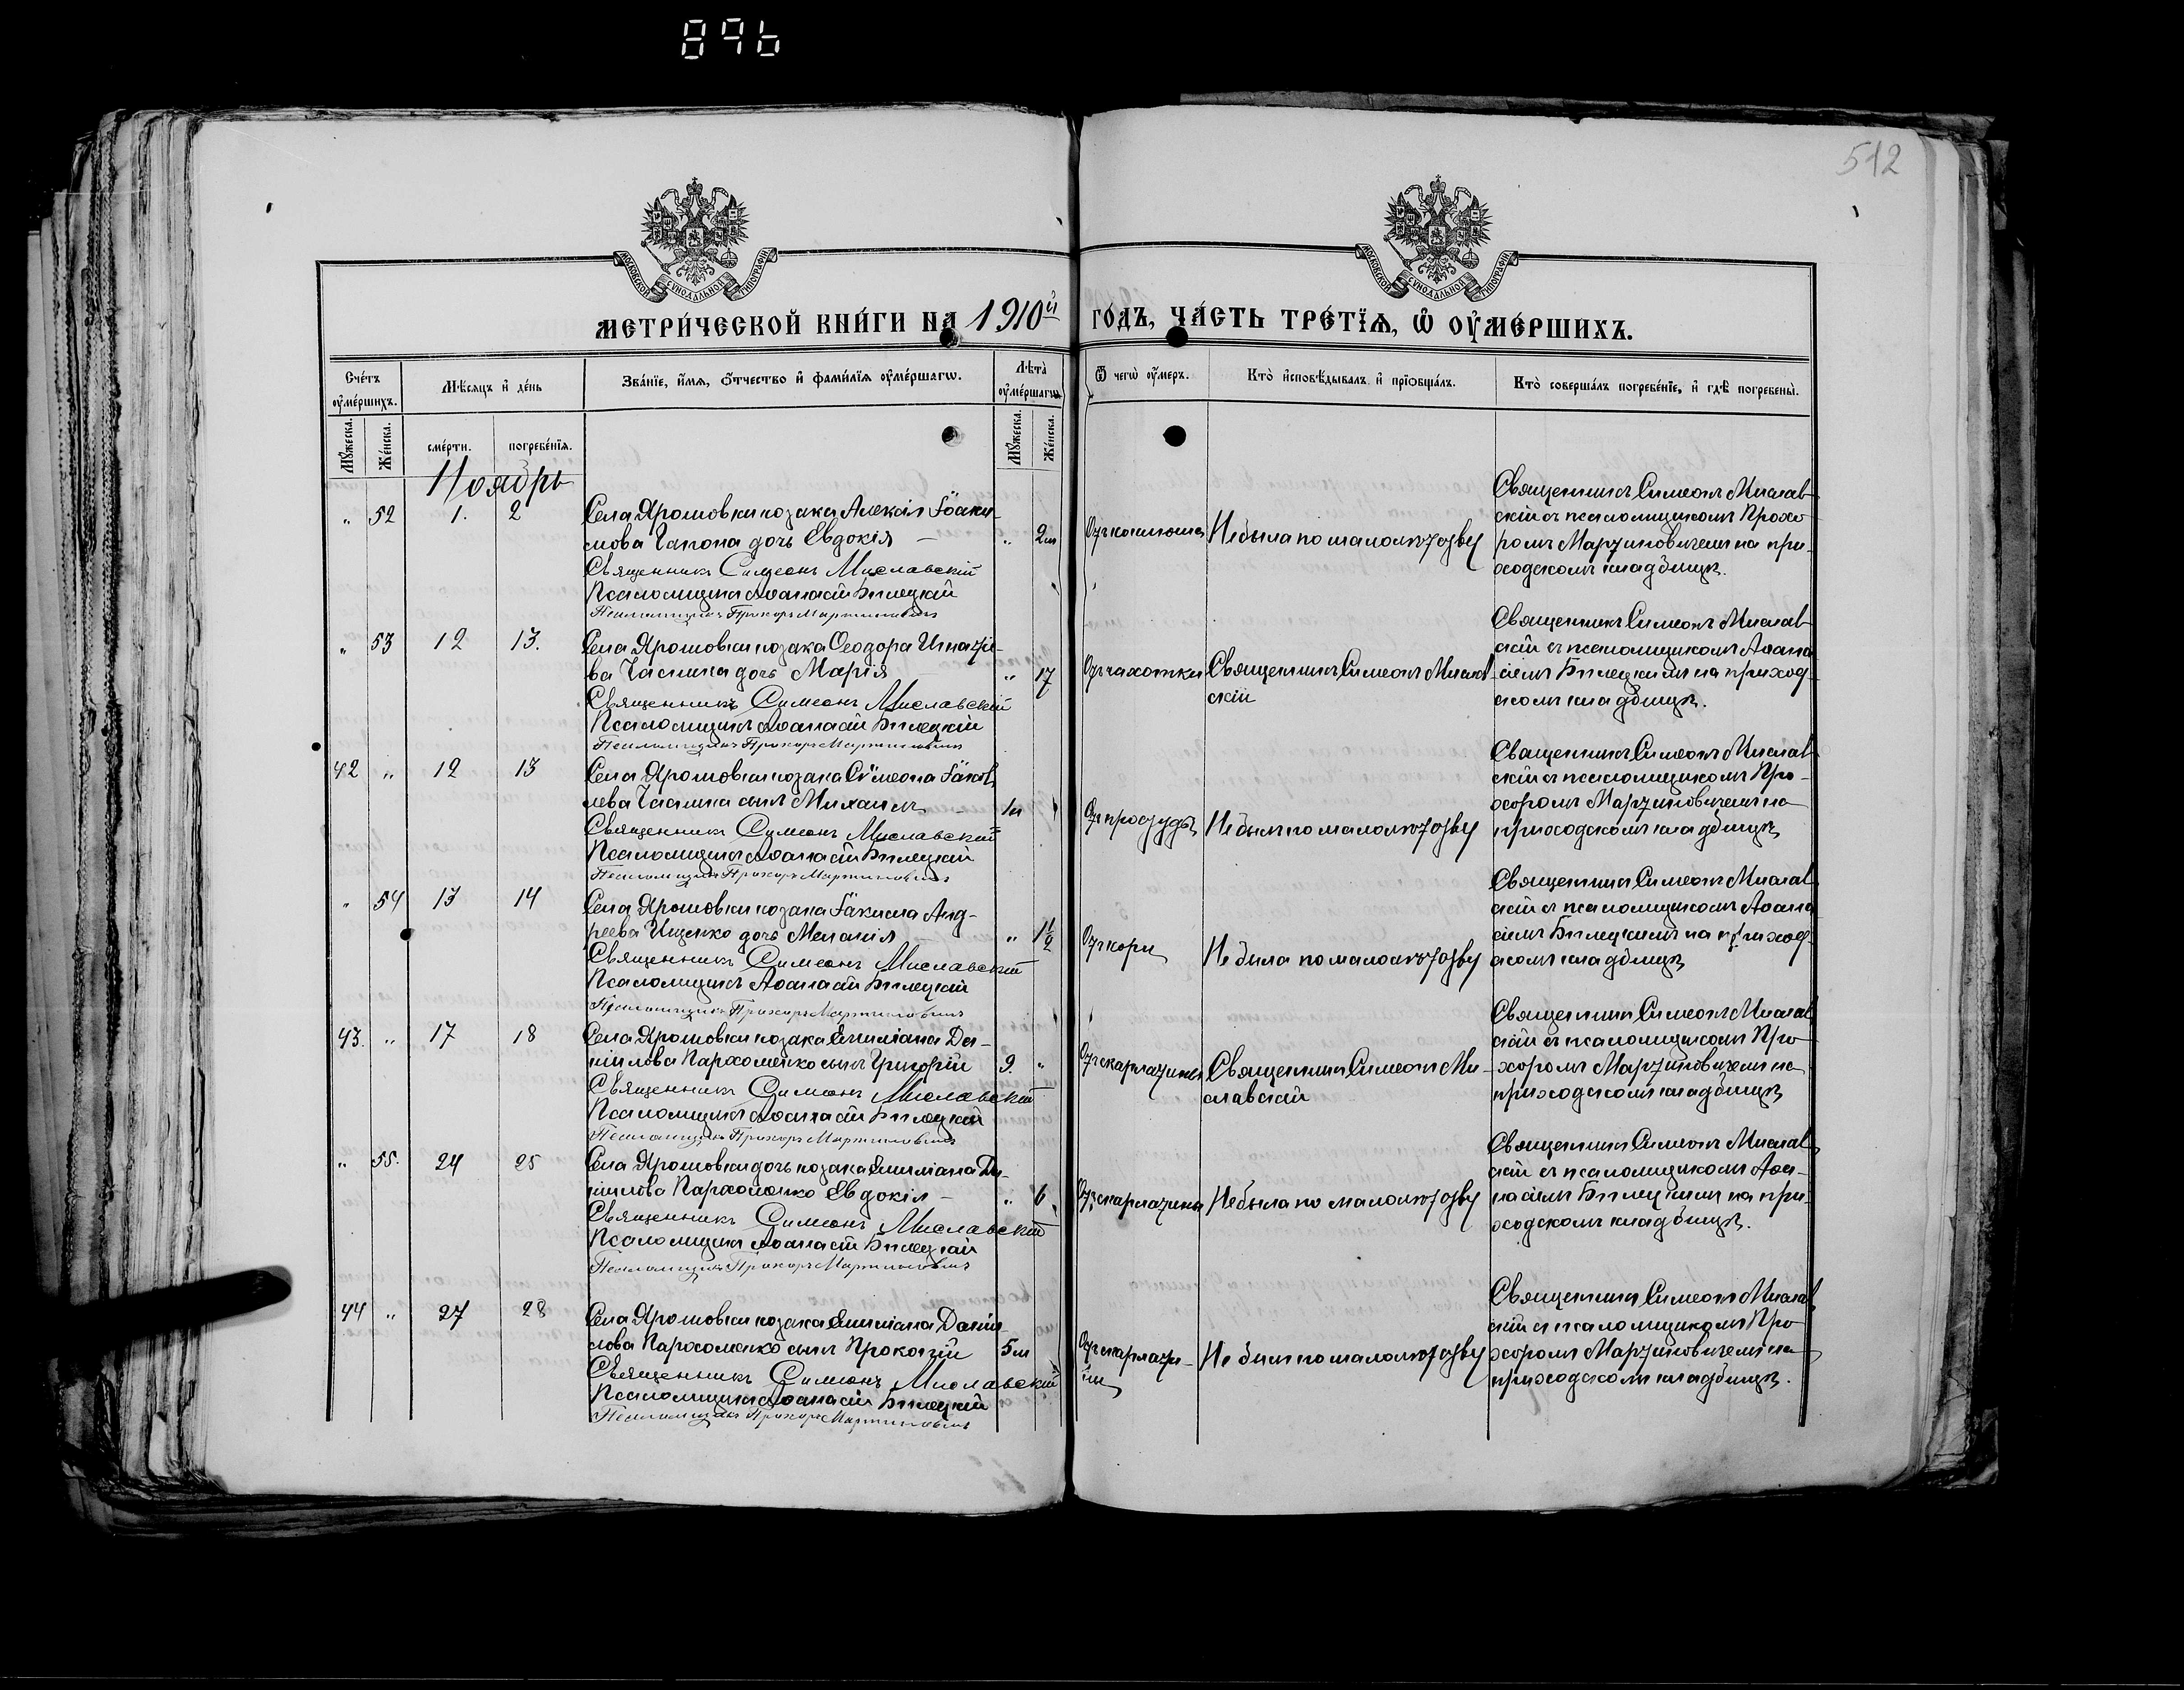 896
512
МОСКОВСКОЙ СУНОДАЛЬНОЙ ТИПОГРАФІИ
МОСКОВСКОЙ СУНОДАЛЬНОЙ ТИПОГРАФІИ
МЕТРИ́ЧЕСКОЙ КНИ́ГИ НА 1910й ГО́ДЪ, ЧА́СТЬ ТРЕ́ТЇѦ, Ѡ҆ ОУ҆МЕ́РШИХЪ.
Сче́тъ оу҆ме́ршихъ.
Мѣ́сяцъ и҆ де́нь
Зва́нїе, и҆́мя, ѻ҆́тчество и҆ фами́лїя оу҆ме́ршагѡ.
Лѣ́та оу҆ме́ршагѡ
Ѿ чегѡ̀ оу҆́меръ.
Кто̀ и҆сповѣ́дывалъ и҆ прїѡбща́лъ.
Кто̀ соверша́лъ погребе́нїе, и҆ гдѣ̀ погребены̀.
Мꙋ́жеска.
Же́нска.
сме́рти.
погребе́нїя.
Мꙋ́жеска.
Же́нска.
Ноябрь
" 52 1. 2
Села Ярошовки козака Алексія Іоаки-
мова Гапона дочь Евдокія —
" 2м
Священникъ Симеонъ Миславскій
Псаломщикъ Аѳанасій Билецкій
Псаломщикъ Прохоръ Мартиновичъ
Отъ коклюша
Не была по малолѣтству
Священникъ Симеонъ Мислав-
скій съ псаломщикомъ Прохо-
ромъ Мартиновичемъ на при-
ходскомъ кладбищѣ.
" 53 12 13.
Села Ярошовки козака Ѳеодора Игнатіе-
ва Чаплика дочь Марія
" 17
Священникъ Симеонъ Миславскій
Псаломщикъ Аѳанасій Билецкій
Псаломщикъ Прохоръ Мартиновичъ
Отъ чахотки
Священникъ Симеонъ Мислав-
скій
Священникъ Симеонъ Мислав-
скій съ псаломщикомъ Аѳана-
сіемъ Билецкимъ на приход-
скомъ кладбищѣ.
42 " 12 13
Села Ярошовки козака Сѵмеона Іаков-
лева сынъ Михаилъ
1м
Священникъ Симеонъ Миславскій
Псаломщикъ Аѳанасій Билецкій
Псаломщикъ Прохоръ Мартиновичъ
Отъ простуды
Не былъ по малолѣтству
Священникъ Симеонъ Мислав-
скій съ псаломщикомъ Про-
хоромъ Мартиновичемъ на
приходскомъ кладбищѣ
" 54 13 14
Села Ярошовки козака Іакима Анд-
реева Ищенко дочь Меланія
" 1 1/2
Священникъ Симеонъ Миславскій
Псаломщикъ Аѳанасій Билецкій
Псаломщикъ Прохоръ Мартиновичъ
Отъ кори
Не была по малолѣтству
Священникъ Симеонъ Мислав-
скій съ псаломщикомъ Аѳана-
сіемъ Билецкимъ на приход-
скомъ кладбищѣ
43. " 17 18
Села Ярошовки козака Емиліана Да-
ніилова Пархоменко сынъ Григорій
9. "
Священникъ Симеонъ Миславскій
Псаломщикъ Аѳанасій Билецкій
Псаломщикъ Прохоръ Мартиновичъ
Отъ скарлатины
Священникъ Симеонъ Ми-
славскій
Священникъ Симеонъ Мислав-
скій съ псаломщикомъ Про-
хоромъ Мартиновичемъ на
приходскомъ кладбищѣ
" 55. 24 25
Села Ярошовки дочь козака Емиліана Да-
ніилова Пархоменко Евдокія —
" 6
Священникъ Симеонъ Миславскій
Псаломщикъ Аѳанасій Билецкій
Псаломщикъ Прохоръ Мартиновичъ
Отъ скарлатины
Не была по малолѣтству
Священникъ Симеонъ Мислав-
скій съ псаломщикомъ Аѳа-
насіемъ Билецкимъ на при-
ходскомъ кладбищѣ.
44 " 27 28
Села Ярошовки козака Емиліана Даніи-
лова Пархоменко сынъ Прокопій
5м
Священникъ Симеонъ Миславскій
Псаломщикъ Аѳанасій Билецкій
Псаломщикъ Прохоръ Мартиновичъ
Отъ скарлати-
ны
Не былъ по малолѣтству
Священникъ Симеонъ Мислав-
скій съ псаломщикомъ Про-
хоромъ Мартиновичемъ на
приходскомъ кладбищѣ.